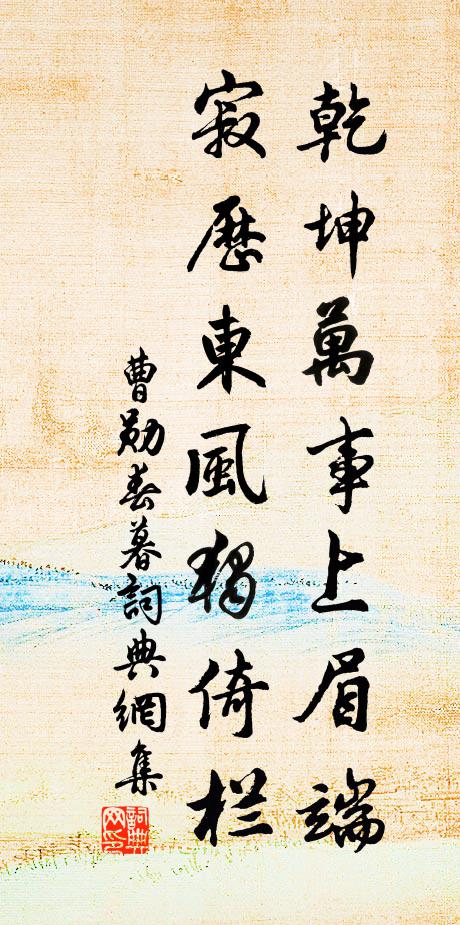 乾坤萬事上眉端
寂歷東風獨倚栏
曹勛春暮詞典網集
詞典网印